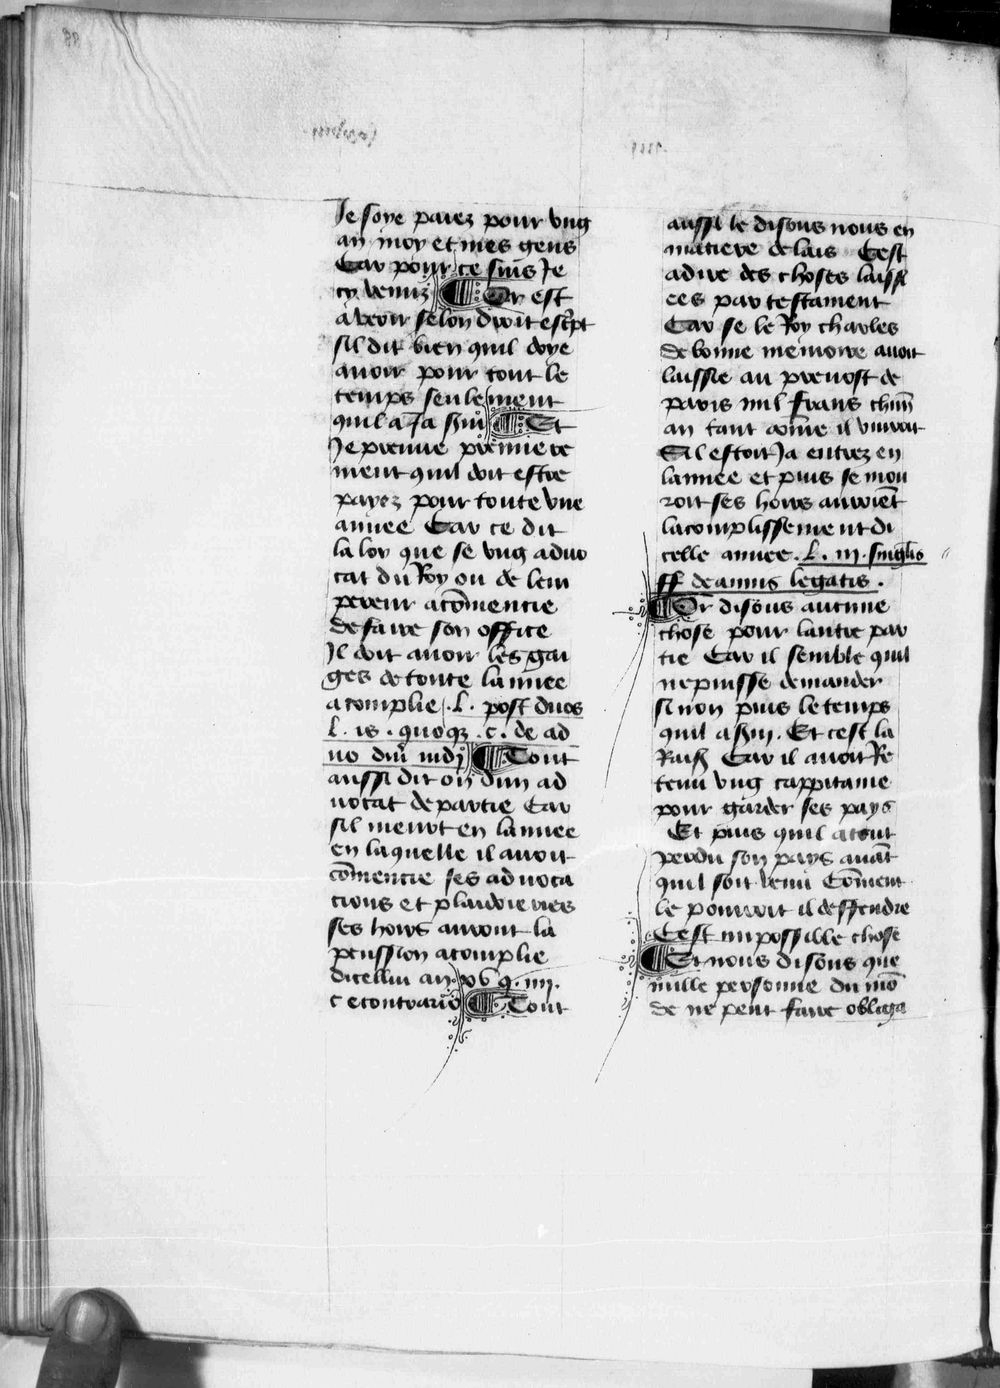 Je soye paiez pour vng
an moy et mes gens
Car pour ce suis Je
cy venuz Or est
a veoir selon droit escpt
sil dit bien quil doye
auoir pour tout le
temps seulement
quil a Ja sui Et
Je preuue premiere
ment quil doit estre
payez pour toute vne
annee Car ce dit
la loy que se vng aduo
cat du Roy ou de leur
pereur a comencie
de faire son office
Il doit auoir les gai
ges de toute lannee
acomplie . l. post duos
l. is. quoq . c. de ad
uo diu iudi Tout
aussi dit on dun ad
uocat de partie Car
sil meurt en lannee
en laquelle il auoit
comencie ses aduoca
cions et plaidoieries
ses hoirs auront la
pension acomplie
dicellui an. xv q. iiii.
c e contrario Tout
aussi le disons nous en
matiere de lais Cest
adire des choses laissi
ees par testament
Car se le Roy charles
de bonne memoire auoit
laissie au preuost de
paris mil frans chun
an tant come il viuroit
Sil estoit Ja entrez en
lannee et puis se mou
roit ses hoirs auroiet
lacomplissement di
celle annee. l. in. singlis
ff de annis legatis.
Or disons aucune
chose pour lautre par
tie Car il semble quil
ne puisse demander
si non puis le temps
quil a sui. Et cest la
Raiso Car il auoit Re
tenu vng cappitaine
pour garder ses pays
Et puis quil a tout
perdu son pays auat
quil soit venu Coment
le pourroit il deffendre
Cest impossible chose
Et nous disons que
nulle personne du mo
de ne peut faire obliga